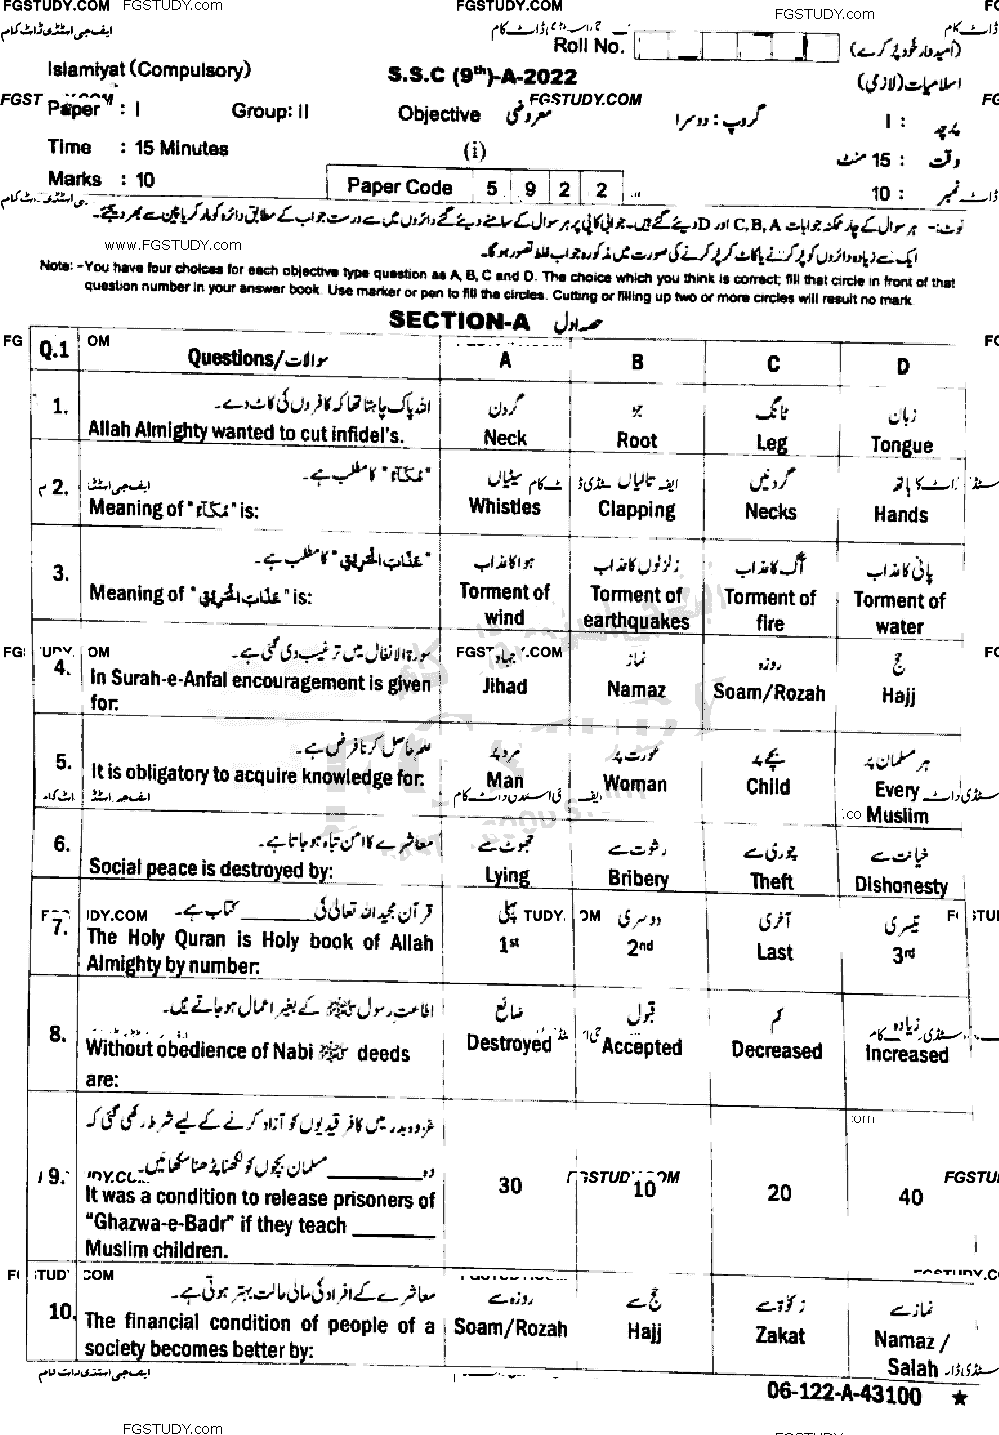 FGSTUDY.COM FGSTUDY.COM FGSTUDY.COM FGSTUDY.COM
ایف جی اسٹڈی ڈاٹ کام
Roll No. (امیدوار خود پر کرے)
Islamiyat (Compulsory) S.S.C (9th)-A-2022 اسلامیات (لازمی)
FGSTUDY.COM
Paper : I Group: II Objective معروضی گروپ : دوسرا پرچہ : I
Time : 15 Minutes (i) وقت : 15 منٹ
Marks : 10 Paper Code 5 9 2 2 نمبر : 10
نوٹ:- ہر سوال کے چار ممکنہ جوابات A, B, C اور D دیئے گئے ہیں۔ جوابی کاپی پر ہر سوال کے سامنے دیئے گئے دائروں میں سے درست جواب کے مطابق دائرہ کو مارکر یا پین سے بھر دیجئے۔
www.FGSTUDY.com ایک سے زیادہ دائروں کو پُر کرنے یا کاٹ کر پُر کرنے کی صورت میں مذکورہ جواب غلط تصور ہوگا۔
Note: -You have four choices for each objective type question as A, B, C and D. The choice which you think is correct; fill that circle in front of that
question number in your answer book. Use marker or pen to fill the circles. Cutting or filling up two or more circles will result no mark
SECTION-A حصہ اول
Q.1 Questions/سوالات A B C D
1. اللہ پاک چاہتا تھا کہ کافروں کی کاٹ دے۔ گردن جو ٹانگ زبان
Allah Almighty wanted to cut infidel's. Neck Root Leg Tongue
2. "مُکَآءً" کا مطلب ہے۔ سیٹیاں تالیاں گردنیں ہاتھ
Meaning of "مُکَآءً" is: Whistles Clapping Necks Hands
3. "عَذَابَ الْحَرِیْقِ" کا مطلب ہے۔ ہوا کا عذاب زلزلوں کا عذاب آگ کا عذاب پانی کا عذاب
Meaning of "عَذَابَ الْحَرِیْقِ" is: Torment of wind Torment of earthquakes Torment of fire Torment of water
4. سورۃ الانفال میں ترغیب دی گئی ہے۔ جہاد نماز روزہ حج
In Surah-e-Anfal encouragement is given for: Jihad Namaz Soam/Rozah Hajj
5. علم حاصل کرنا فرض ہے۔ مرد پر عورت پر بچے پر ہر مسلمان پر
It is obligatory to acquire knowledge for: Man Woman Child Every Muslim
6. معاشرے کا امن تباہ ہو جاتا ہے۔ جھوٹ سے رشوت سے چوری سے خیانت سے
Social peace is destroyed by: Lying Bribery Theft Dishonesty
7. قرآن مجید اللہ تعالیٰ کی ________ کتاب ہے۔ پہلی دوسری آخری تیسری
The Holy Quran is Holy book of Allah Almighty by number: 1st 2nd Last 3rd
8. اطاعت رسول ﷺ کے بغیر اعمال ہو جاتے ہیں۔ ضائع قبول کم زیادہ
Without obedience of Nabi ﷺ deeds are: Destroyed Accepted Decreased Increased
9. غزوہ بدر میں کافر قیدیوں کو آزاد کرنے کے لیے شرط رکھی گئی کہ
وہ ________ مسلمان بچوں کو لکھنا پڑھنا سکھائیں۔
It was a condition to release prisoners of "Ghazwa-e-Badr" if they teach ________ Muslim children. 30 10 20 40
10. معاشرے کے افراد کی مالی حالت بہتر ہوتی ہے۔ روزہ سے حج سے زکوٰۃ سے نماز سے
The financial condition of people of a society becomes better by: Soam/Rozah Hajj Zakat Namaz / Salah
ایف جی اسٹڈی ڈاٹ کام
06-122-A-43100 ★
FGSTUDY.com